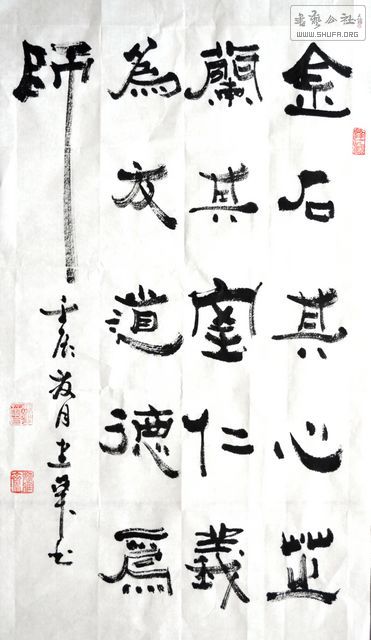 金石其心芝
蘭其室仁義
為友道德爲
師
壬辰 月 书
书艺公社
WWW.SHUFA.ORG